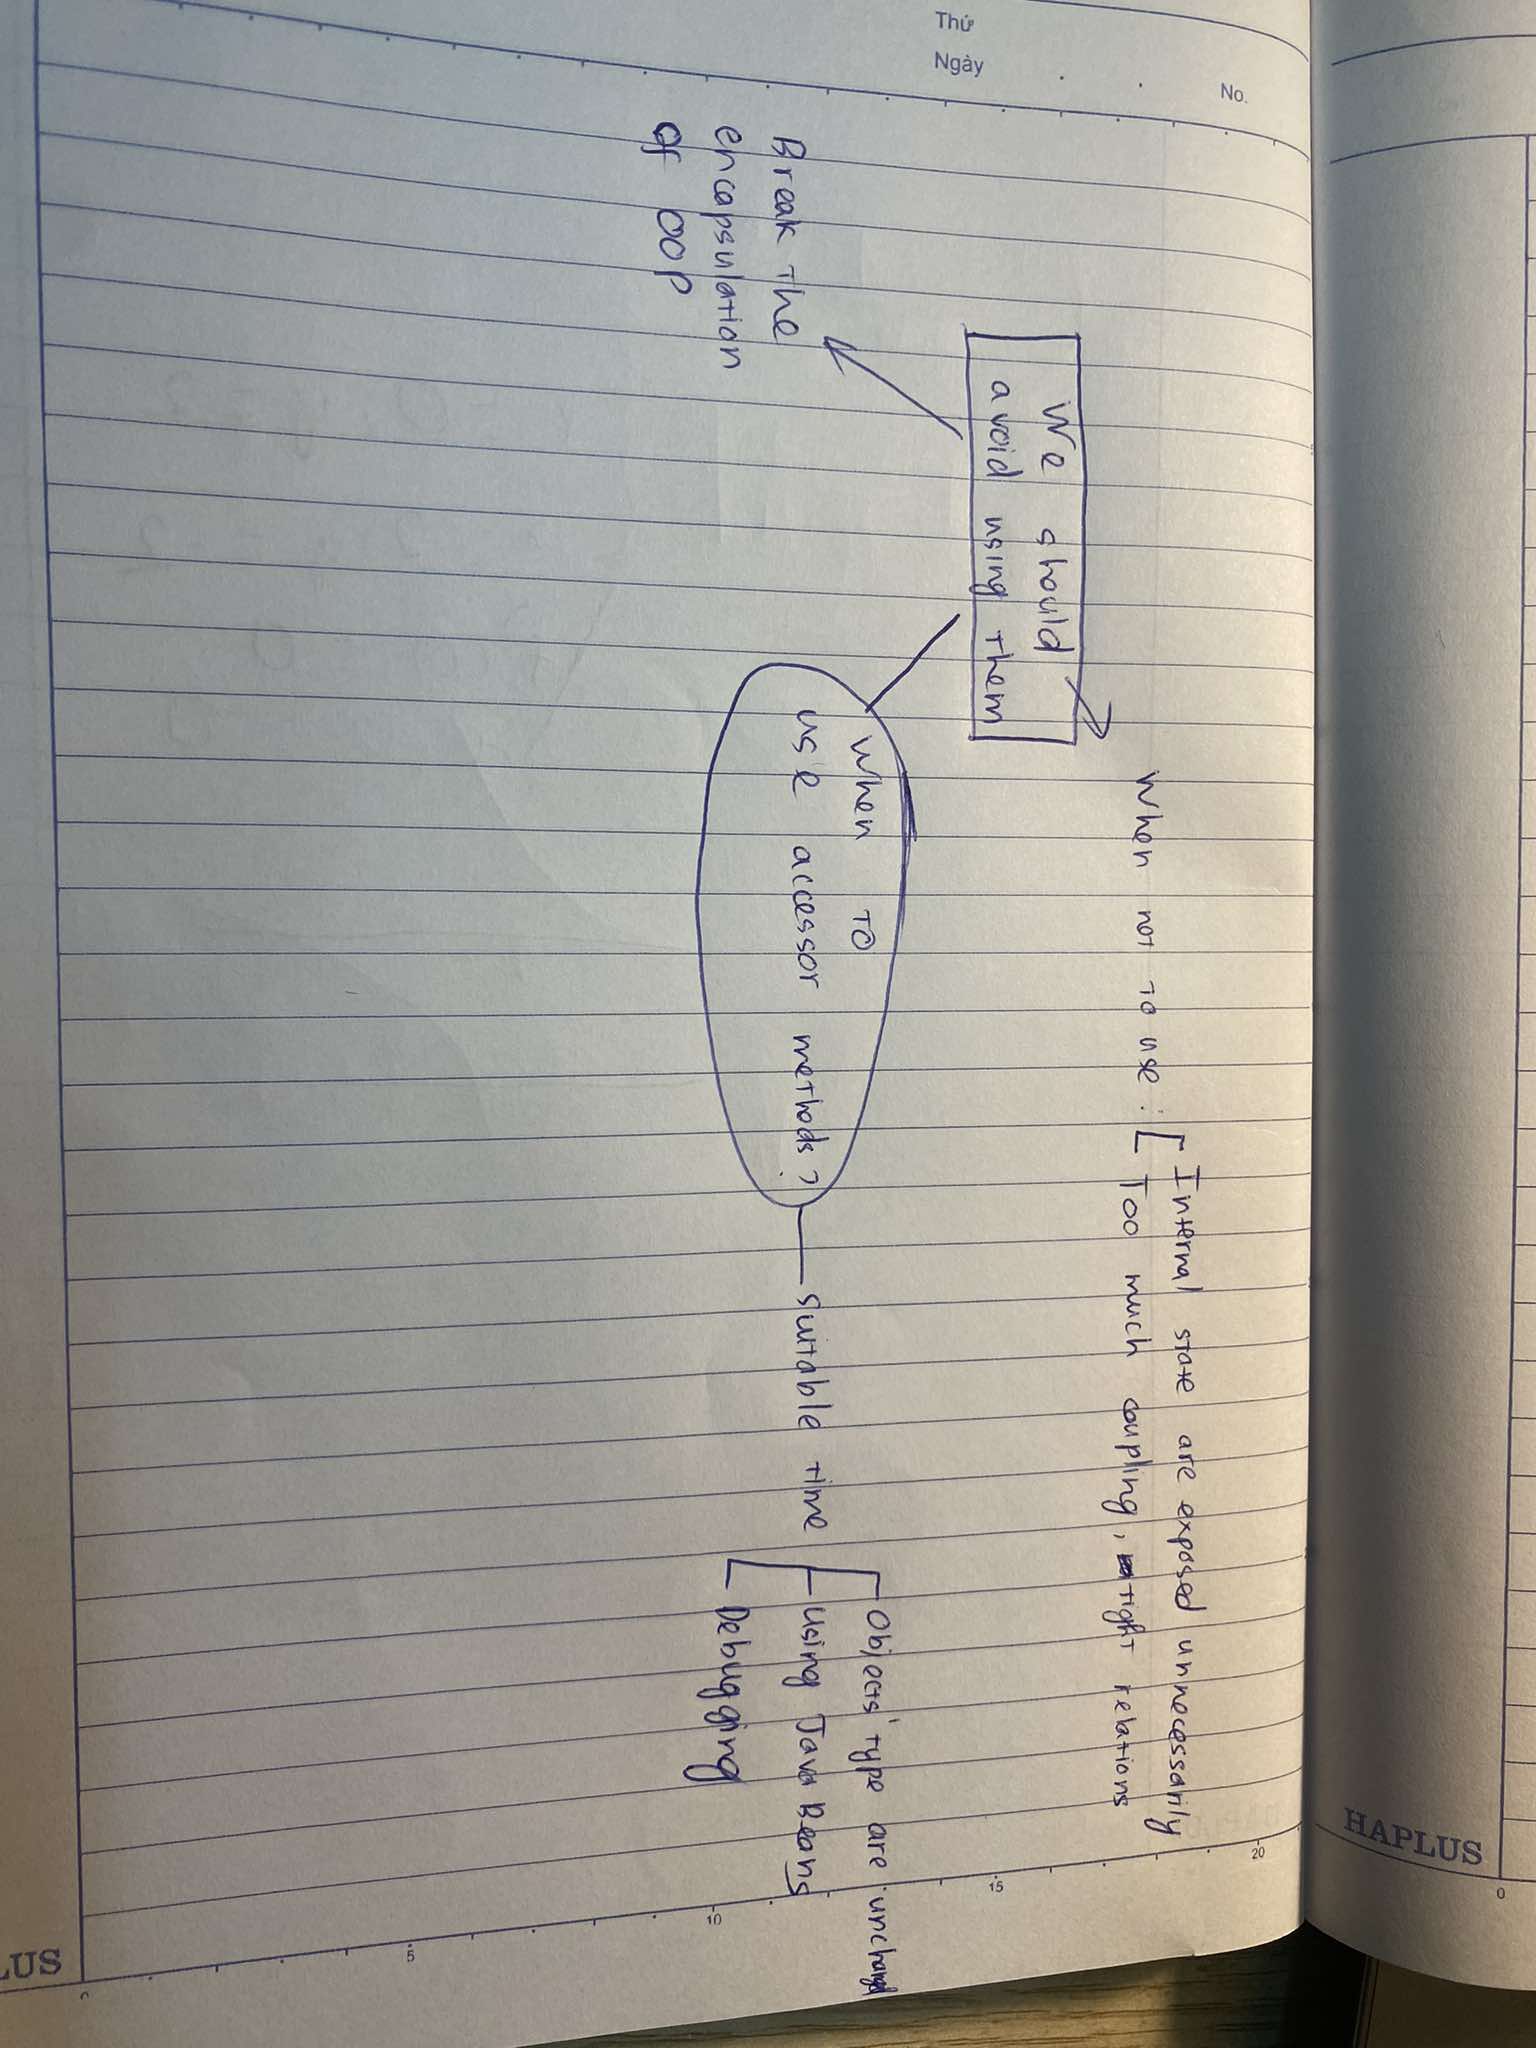 Thứ
Ngày
No.
When not to use:
Internal state are exposed unnecessarily
Too much coupling, tight relations
We should
avoid using them
Break the
encapsulation
of OOP
When to
use accessor methods?
Suitable time
Objects' type are unchangd
Using Java Beans
Debugging
HAPLUS
LUS
0
5
10
15
20
0